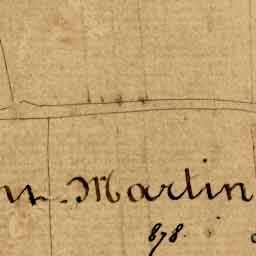 Martin
878.